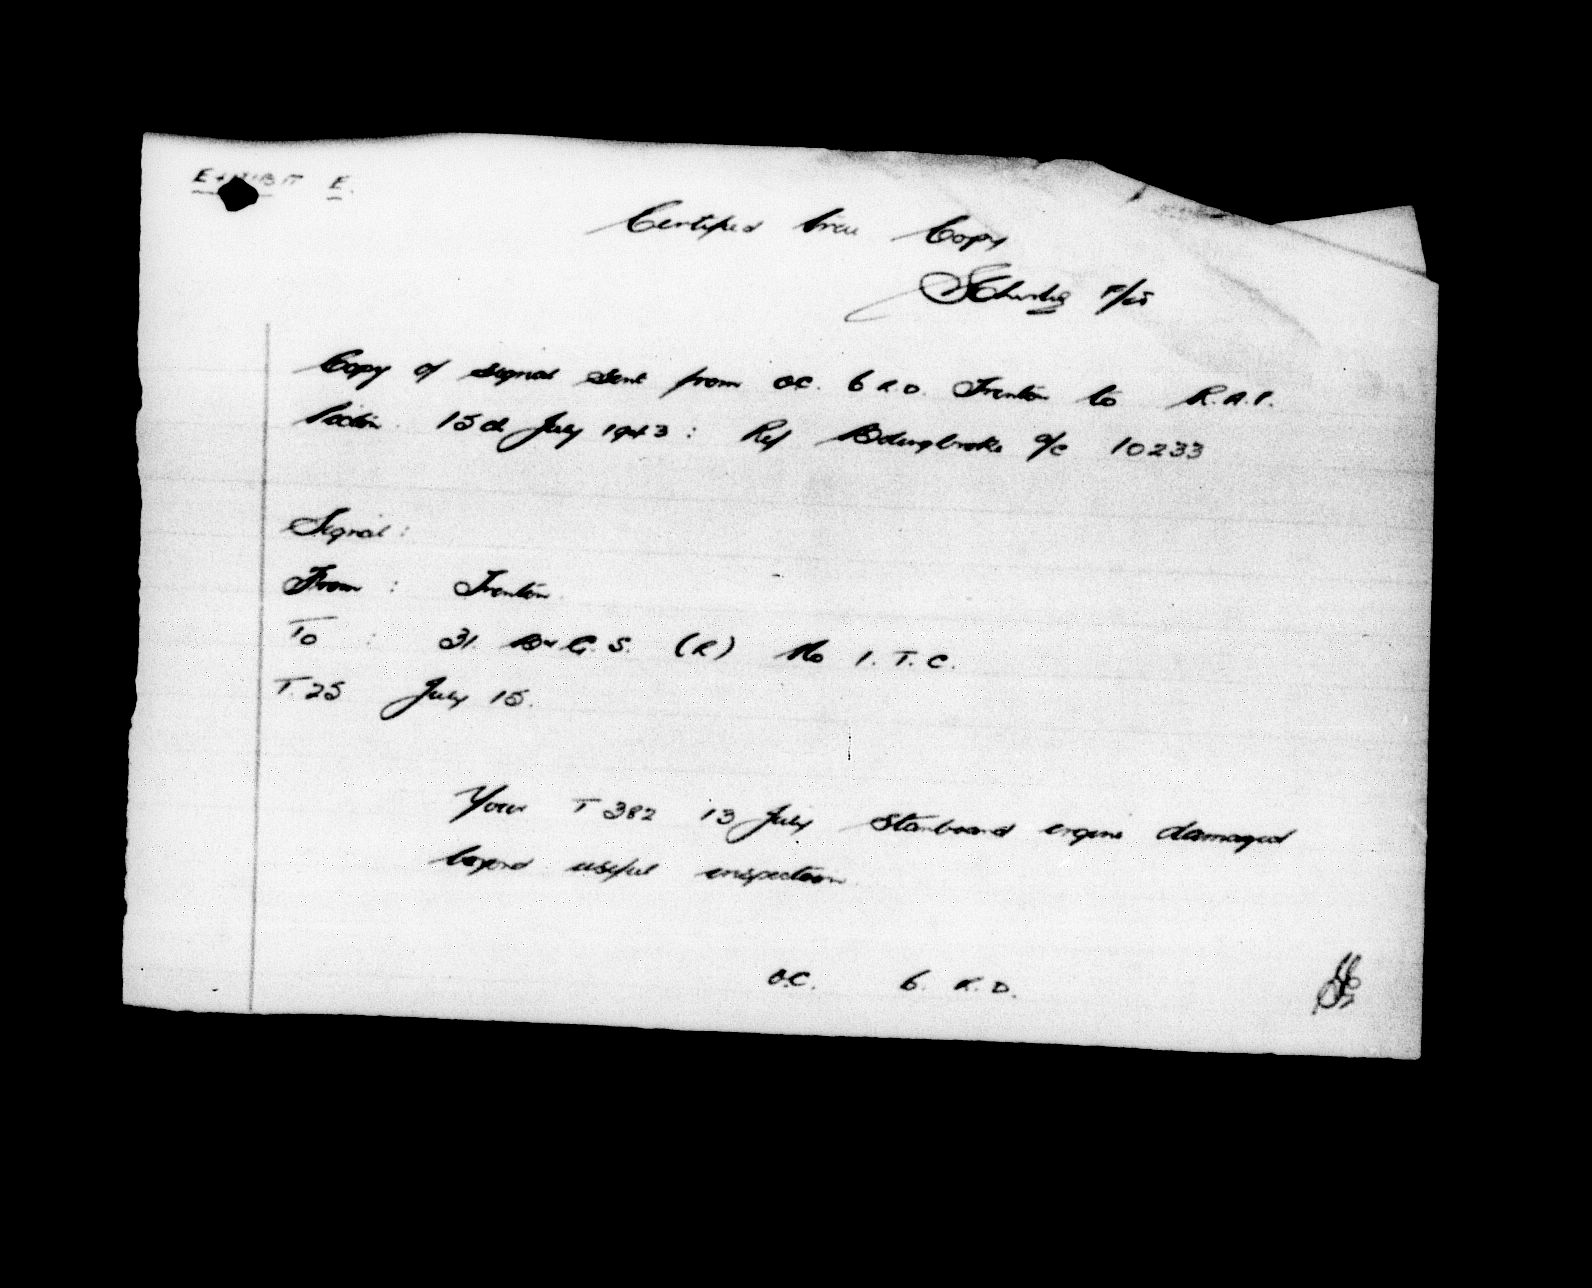 EXHIBIT E.
Certified True Copy
F/Lt
Copy of signal sent from O.C. 6 R.D. Trenton to R.A.F.
Picton. 15th July 1943: Ref Bolingbroke a/c 10233
Signal:
From: Trenton
To: 31 B & G. S. (R) No 1. T. C.
T.25 July 15.
Your T 382 13 July Starboard engine damaged
beyond useful inspection.
O.C. 6. R. D.